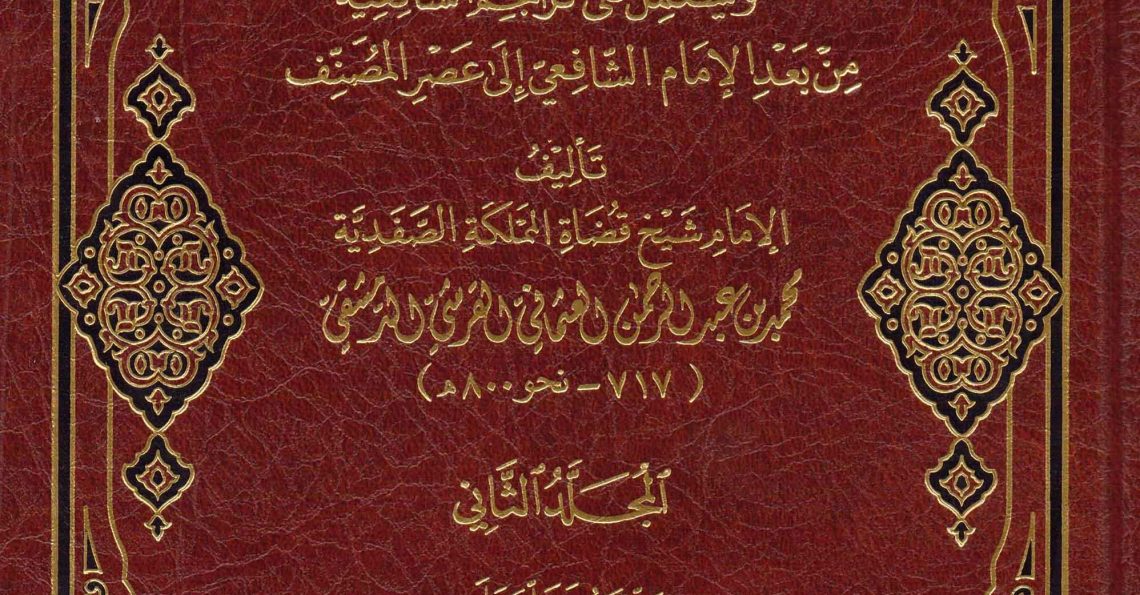 ويشتمل على تراجم الشافعية
مِنْ بَعْدِ الإِمَامِ الشَّافِعِيِّ إِلَى عَصْرِ المُصَنِّفِ
تَأْلِيْفُ
الإِمَامِ شَيْخِ قُضَاةِ المَمْلَكَةِ الصَّفَدِيَّةِ
محمد بن عبد الرحمن العثماني القرشي الدمشقي
(٧١٧ - نحو ٨٠٠ ه)
المُجَلَّدُ الثَّانِي